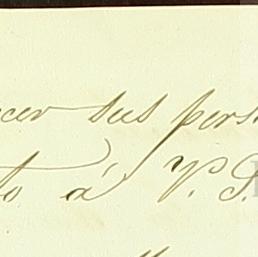 cer sus pers
to á V. S.